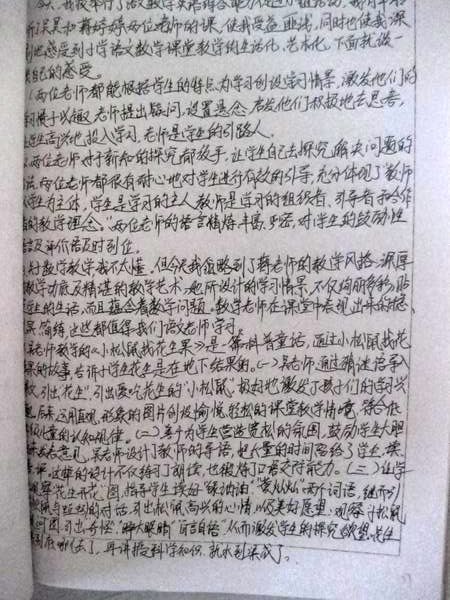 今天,我校举行了语文数学
听吴昊和蒋婷婷两位老师的课,使我受益匪浅,同时也使我深
感受到了语文数学课堂教学的生活化、艺术化,下面就谈一
自己的感受。
两位老师都能根据学生的特点为学习创设学习情景,激发他们的
学习情于以趣,老师提出疑问,设置悬念,启发他们积极地去思考,
学生高兴地投入学习,老师是学生的引路人。
两位老师对于新知的探究都放手,让学生自己去探究解决问题的
法,两位老师都很有耐心地对学生进行有效的引导,充分体现了教师
学生为主体,学生是学习的主人,教师是学习的组织者、引导者和合作
的教学理念。两位老师的语言精炼丰富、严密,对学生的鼓励性
及评价语及时到位。
对数学教学我不太懂,但今天我领略到了蒋老师的教学风格,深厚
教学功底及精湛的教学艺术,她所设计的学习情景,不仅绚丽多彩,贴
学生的生活,而且蕴含着数学问题,数学老师在课堂中表现出来的
简练,这些都值得我们语文老师学习。
吴老师教学的《小松鼠找花生果》是一篇科普童话,通过小松鼠找花
果的故事告诉小学生花生是在地下结果的。(一)吴老师通过猜谜语导入
引出"花生",引出爱吃花生的"小松鼠",极大地激发了孩子们的学习兴
后来运用直观、形象的图片创设愉悦、轻松的课堂教学情境,符合低
儿童的认知规律。(二)善于为学生营造宽松的氛围,鼓励学生大胆
意见,吴老师设计了教师的导语,把大量的时间留给了学生,读
这样的设计不仅练习了朗读,也锻炼了口语交际能力。(三)让学
观察花生开花图,指导学生读好"绿油油""黄灿灿"两个词语,继而引
松鼠与鼹鼠的对话,引出松鼠高兴的心情以及美好愿望,观察小松鼠
图,引出"奇怪""睁大眼睛""自言自语"从而激发学生的探究欲望,花生
到底哪儿去了,再讲授科学知识,就水到渠成了。